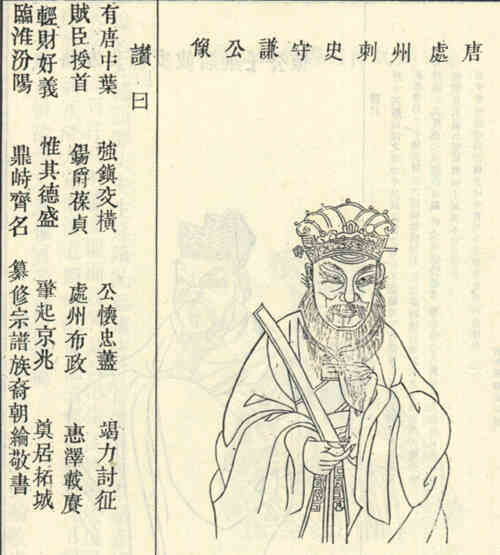 唐處州刺史守謙公像
讚曰
有唐中葉 強鎮交橫 公懷忠藎 竭力討征
賊臣授首 錫爵葆貞 處州布政 惠澤載賡
輕財好義 惟其德盛 肇起京兆 奠居柘城
臨淮汾陽 鼎峙齊名 纂修宗譜族裔朝綸敬書